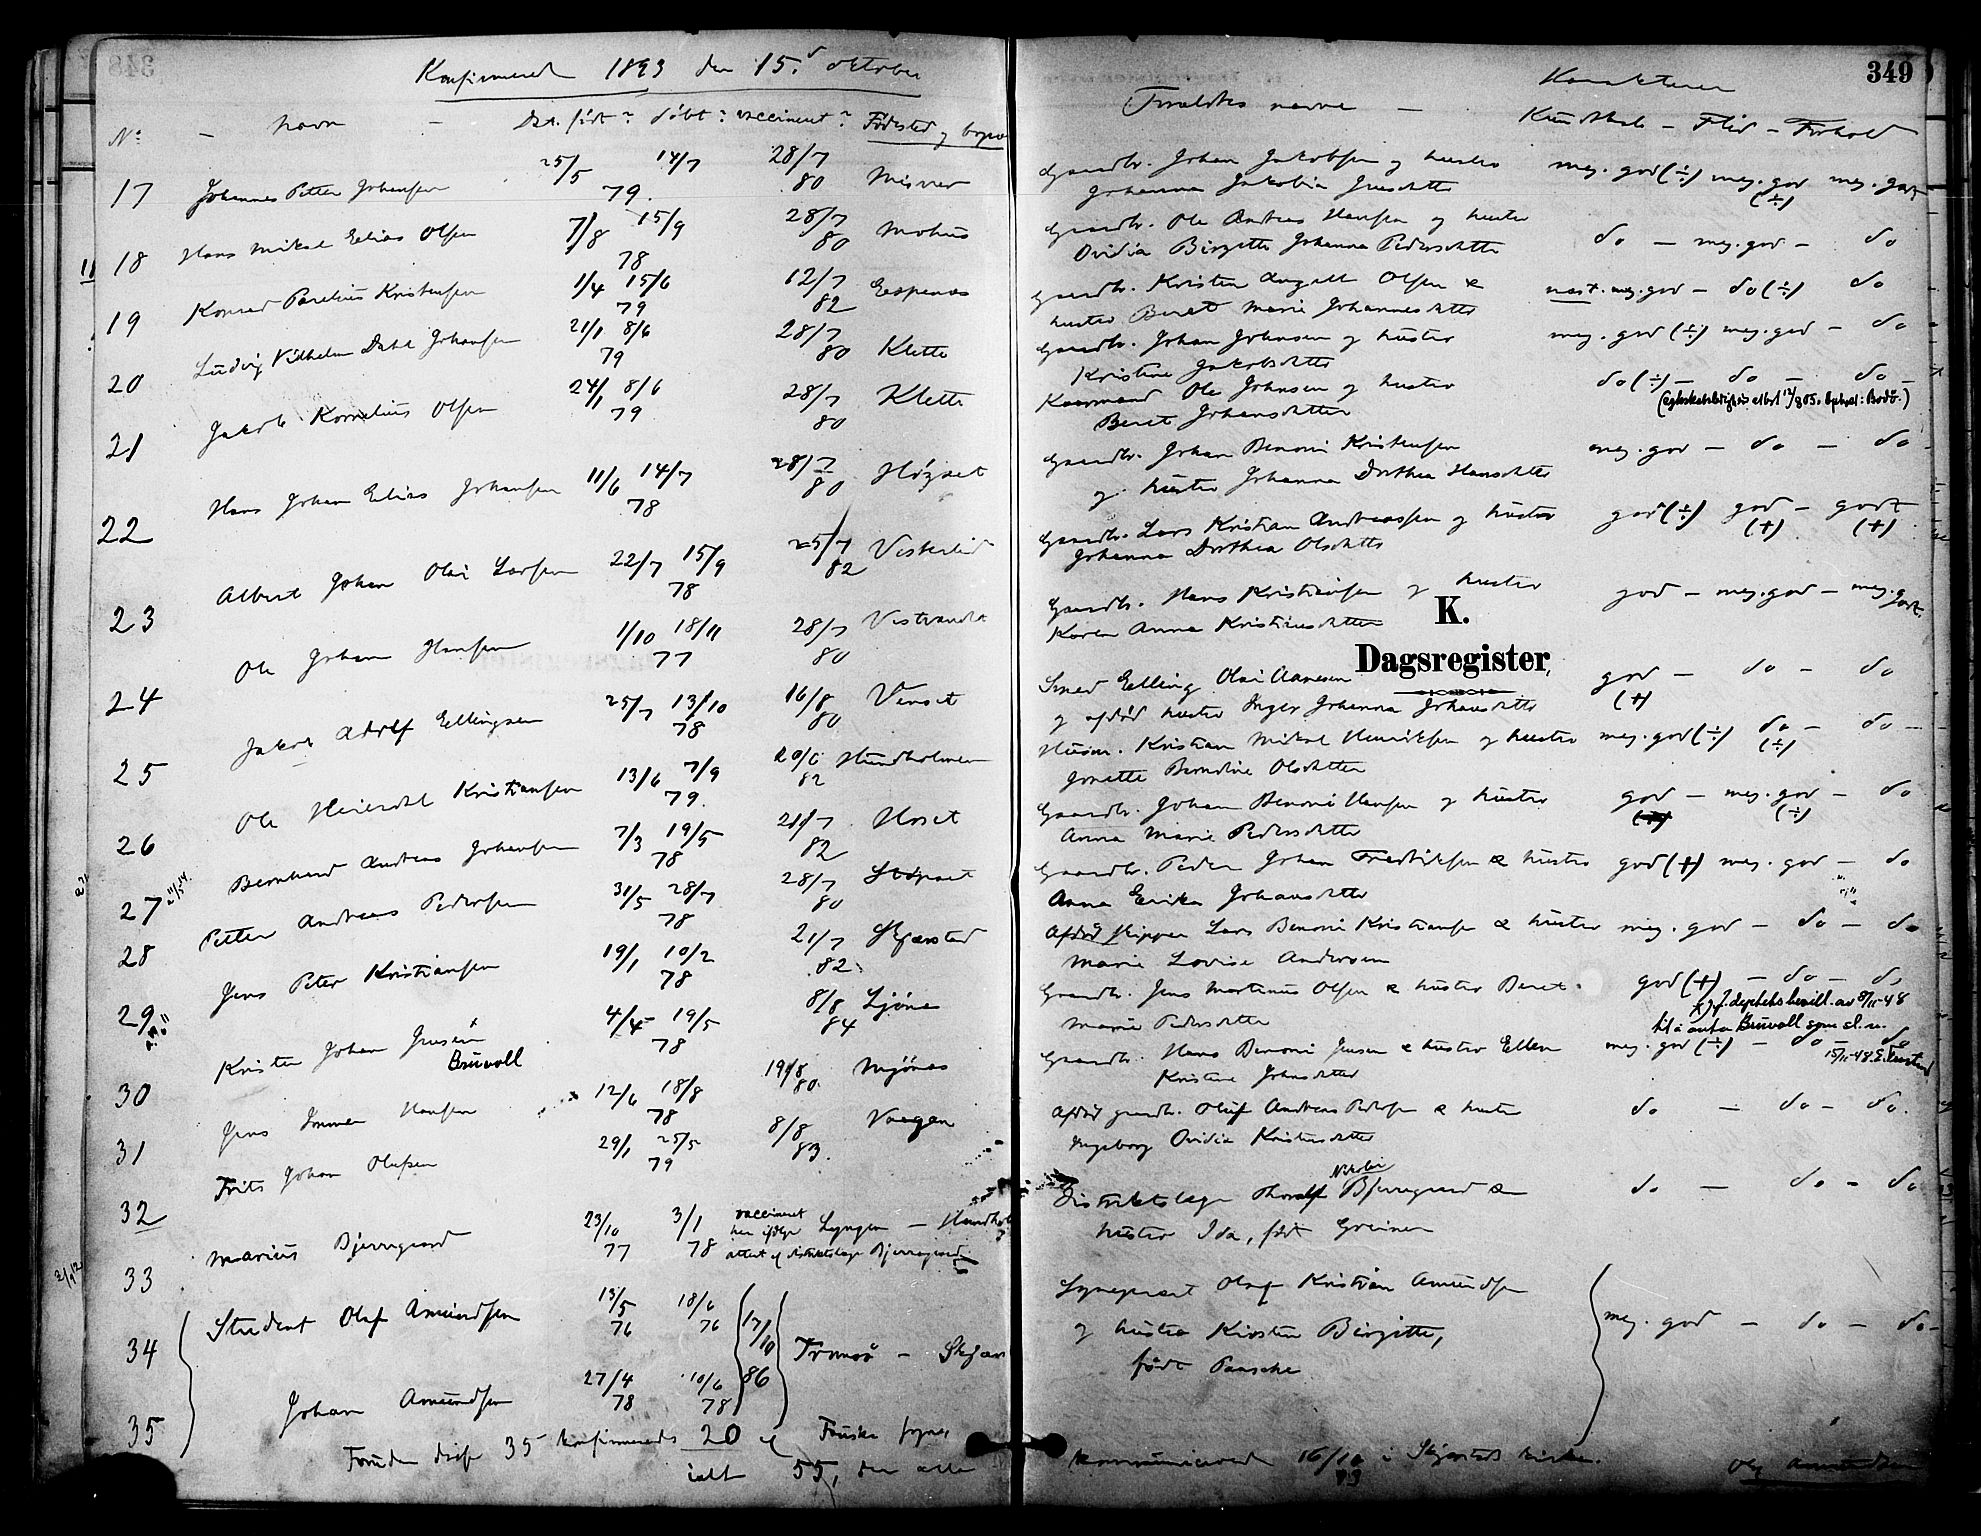 349
Konfirmerede 1893 den 15. oktober
No — Navn — Dat. født? døbt? vaccineret? Fødested og bopæl
Forældres navne — Karakterer
Kundskab — Flid — Forhold
17 Johannes Petter Johansen 25/5 79. 14/7 28/7 80 Misvær
Gaardbr. Johan Jakobsen og hustro meg. god (÷) meg. god (÷) meg. godt
Johanna Jakobia Jensdatter
18 Hans Mikal Elias Olsen 7/8 15/9 78 28/7 80 Mohus
Gaardbr. Ole Andreas Hansen og hustro
Ovidia Birgitte Johanna Pedersdatter do — meg. god — do
19 Konrad Parelius Kristensen 1/4 15/6 79 12/7 82 Espenes
Gaardbr. Kristen Angell Olsen & næst. meg. god — do (÷) do
hustro Beret Marie Johannesdatter
20 Ludvig Vilhelm Dahl Johansen 21/1 8/6 79 28/7 80 Klette
Gaardbr. Johan Johnsen og hustro meg. god (÷) meg. god — do
Kristine Jakobsdatter
21 Jakob Kornelius Olsen 24/1 8/6 79 28/7 80 Klette
Kaarmand Ole Johnsen og hustro do (÷) — do — do —
Beret Johansdatter
22 Hans Johan Elias Johansen 11/6 14/7 78 28/7 80 Høgset
Gaardbr. Johan Benoni Kristensen meg. god — do — do
og hustro Johanna Dorthea Hansdatter
23 Albert Johan Olai Larsen 22/7 15/9 78 25/7 82 Vesterlid
Gaardbr. Lars Kristian Andreassen og hustro god (÷) god (+) — godt (+)
Johanna Dorthea Olsdatter
24 Ole Johan Hansen 1/10 18/11 77 28/7 80
Gaardbr. Hans Kristiansen og hustro god — meg. god — meg. godt.
Karen Anna Kristinsdatter
K.
Dagsregister,
25 Jakob Adolf Ellingsen 25/7 13/10 78 16/8 80 Venset
Smed Elling Olai Aanesen god (+) — do — do
og afdød hustro Inger Johanna Johansdatter
26 Ole Heierdal Kristiansen 13/6 7/9 79. 20/6 82 Hundholmen
Husm. Kristian Mikal Henriksen og hustro meg. god (÷) do (÷) — do
Jonette Berndine Olsdatter
27 Bernhard Andreas Johansen 7/3 19/5 78 21/7 82 Hoset
Gaardbr. Johan Benoni Hansen og hustro god — meg. god (÷) — do
Anna Marie Pedersdatter
28 Petter Andreas Pedersen 31/5 28/7 78 28/7 80
Gaardbr. Peder Johan Fredriksen & hustro god (+) meg. god — do
Anna Erika Johansdatter
29 Jens Peter Kristiansen 19/1 10/2 78 21/7 82 Skjerstad
Afdød skipper Lars Benoni Kristiansen & hustro meg. god — do — do
Marie Lovise Andersen
30 Kristen Johan Jensen x Bruvoll 4/4 19/5 78 8/8 84 Ljønes
Gaardbr. Jens Martinus Olsen & hustro Beret god (+) — do — do
Marie Pedersdatter
x) jf. deptets bevill. av 8/11-48
til å anta Bruvoll som sl. n.
15/11-48.
31 Jens Immer Hansen 12/6 18/8 78 19/8 80. Mjønes
Gaardbr. Hans Benoni Jensen & hustro Ellen meg. god (÷) — do — do
Kristine Johnsdatter
32 Frits Johan Olufsen 29/1 25/5 79 8/8 83. Vaagan
Afdød gaardbr. Oluf Andreas Pedersen & hustro do — do — do.
Ingeborg Ovidia Kristensdatter
33 Marius Bjerregaard 23/10 77 3/1 78 vaccineret her ifølge attest af distriktslæge Bjerregaard Lyngen — Hundhol
Distriktslæge Thoralf Nikolai Bjerregaard & do — do — do
hustro Ida, født Greiner
34 Student Olaf Amundsen 13/5 76 18/6 76 17/10 86 Tromsø — Skjer
Sogneprest Olaf Kristian Amundsen
og hustro Kirsten Birgitte, meg. god — do — do —
født Paasche
35 Johan Amundsen 27/4 78 10/6 78
Foruden disse 35 konfirmeredes 20 af Fauske sogn,
ialt 55, der alle kommunicerede 16/10 93 i Skjerstads kirke.
Olaf Amundsen